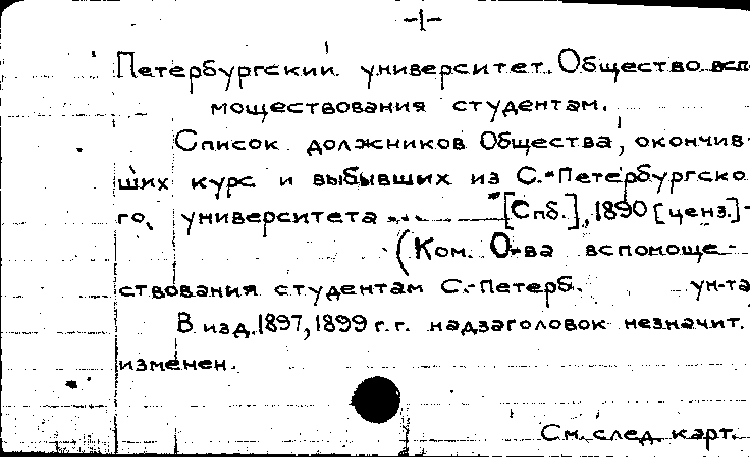 -1-
Петербургский университет. Общество вспо
моществования студентам.
Список должников Общества, окончив-
ших курс и выбывших из С.-Петербургско
го университета ... — [Спб.], 1890 [ценз.] -
(Ком. О-ва вспомоще-
ствования студентам С.-Петерб. ун-та
В изд. 1897, 1899 г.г. надзаголовок незначит.
изменен.
См. след. карт.